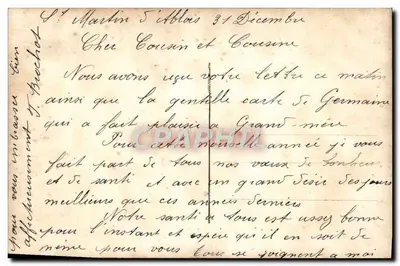 St Martin d'Ablois 31 Décembre
Cher Cousin et Cousine
Nous avons reçu votre lettre ce matin
ainsi que la gentille carte de Germaine
qui a fait plaisir a Grand-mère
Pour cette nouvelle année je vous
fait part de tous nos vœux de bonheur
et de santé et avec un grand désir des jours
meilleurs que ces années derniers
Notre santé a tous est assez bonne
pour l'instant et espère qu'il en soit de
même pour vous tous se joignent a moi
pour vous embrasser bien
affectueusement